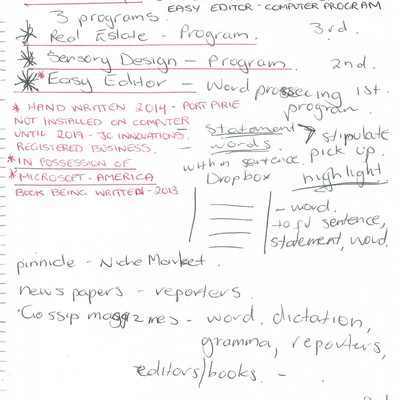 EASY EDITOR - COMPUTER PROGRAM
3 programs.
* Real Estate - Program. 3rd.
* Sensory Design - Program. 2nd.
* Easy Editor - Word prossecing 1st.
program.
* HAND WRITTEN 2014 - PORT PIRIE
NOT INSTALLED ON COMPUTER
UNTIL 2019 - JC INNOVATIONS.
REGISTERED BUSINESS.
* IN POSSESSION OF
* MICROSOFT - AMERICA
BOOK BEING WRITTEN - 2013
- statement → stipulate
- words. pick up.
within sentence. highlight
Dropbox
- word.
sentence,
statement, word.
pinnicle - Niche Market.
news papers - reporters.
Gossip maggzines - word. dictation,
gramma, reporters,
editors/books. -